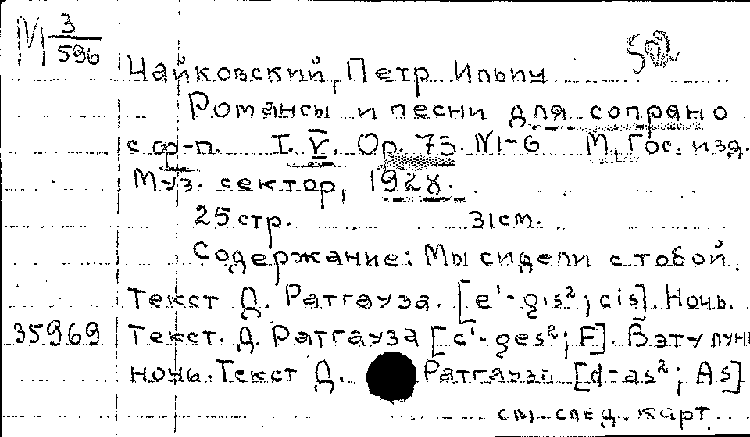 М 3/596
Чайковский, Петр Ильич
Романсы и песни для сопрано
с ф-п. Т. V. Ор. 73. №1-6 М, Гос. изд.
Муз. сектор, 1928.
25 стр. 31 см.
Содержание: Мы сидели с тобой.
Текст Д. Ратгауза. [e¹-gis²; cis]. Ночь.
35969 Текст. Д. Ратгауза [c¹-ges²; F]. В эту лун
ночь. Текст Д. Ратгауза [d-as²; As]
см. след. карт.